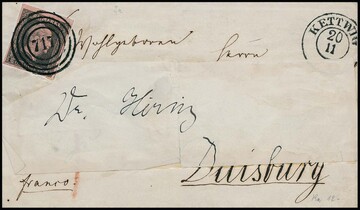 717
KETTWIG
20
11
Wohlgeboren Herrn
Dr.
Duisburg
franco.